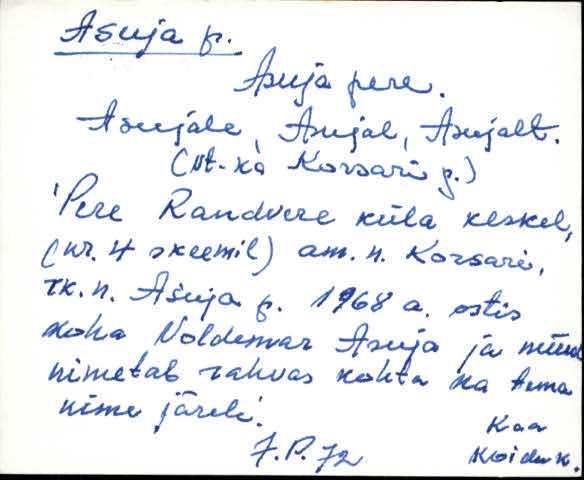 Asuja p.
Asuja pere.
Asujale, Asujal, Asujalt.
(Vt. ka Korsari p.)
'Pere Randvere küla keskel,
(nr. 4 skeemil) am. n. Korsari,
rk. n. Asuja p. 1968 a. ostis
koha Voldemar Asuja ja nüüd
nimetab rahvas kohta ka tema
nime järele'.
Kaa
J.P. 72
Koiduk.